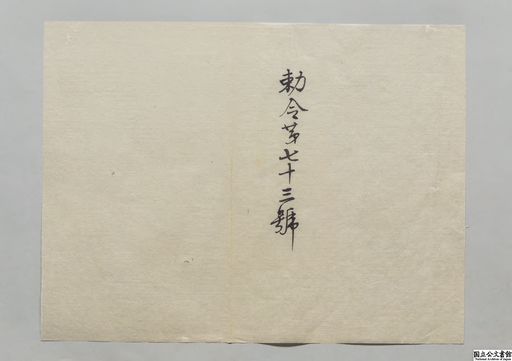 勅令第七十三號
国立公文書館
National Archives of Japan